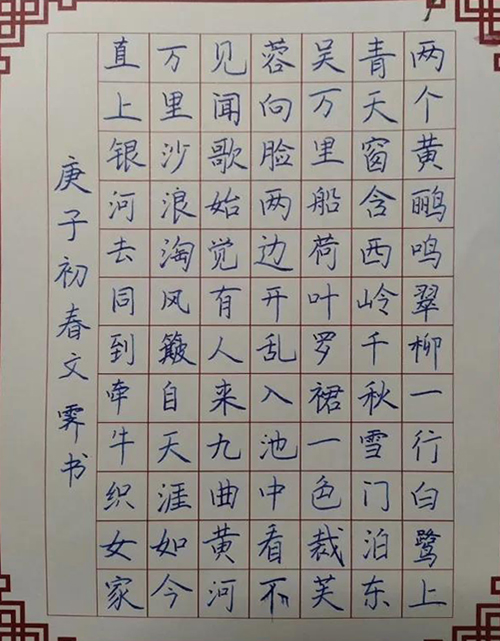 两个黄鹂鸣翠柳一行白鹭上
青天窗含西岭千秋雪门泊东
吴万里船荷叶罗裙一色裁芙
蓉向脸两边开乱入池中看不
见闻歌始觉有人来九曲黄河
万里沙浪淘风簸自天涯如今
直上银河去同到牵牛织女家
庚子初春文霁书